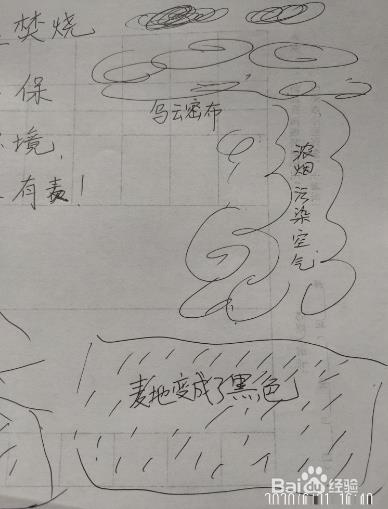 焚烧
保
境，
有毒！
乌云密布
浓烟污染空气
麦地变成了黑色
Baidu经验